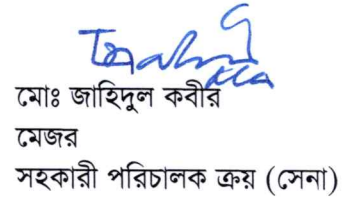 মোঃ জাহিদুল কবীর
মেজর
সহকারী পরিচালক ক্রয় (সেনা)